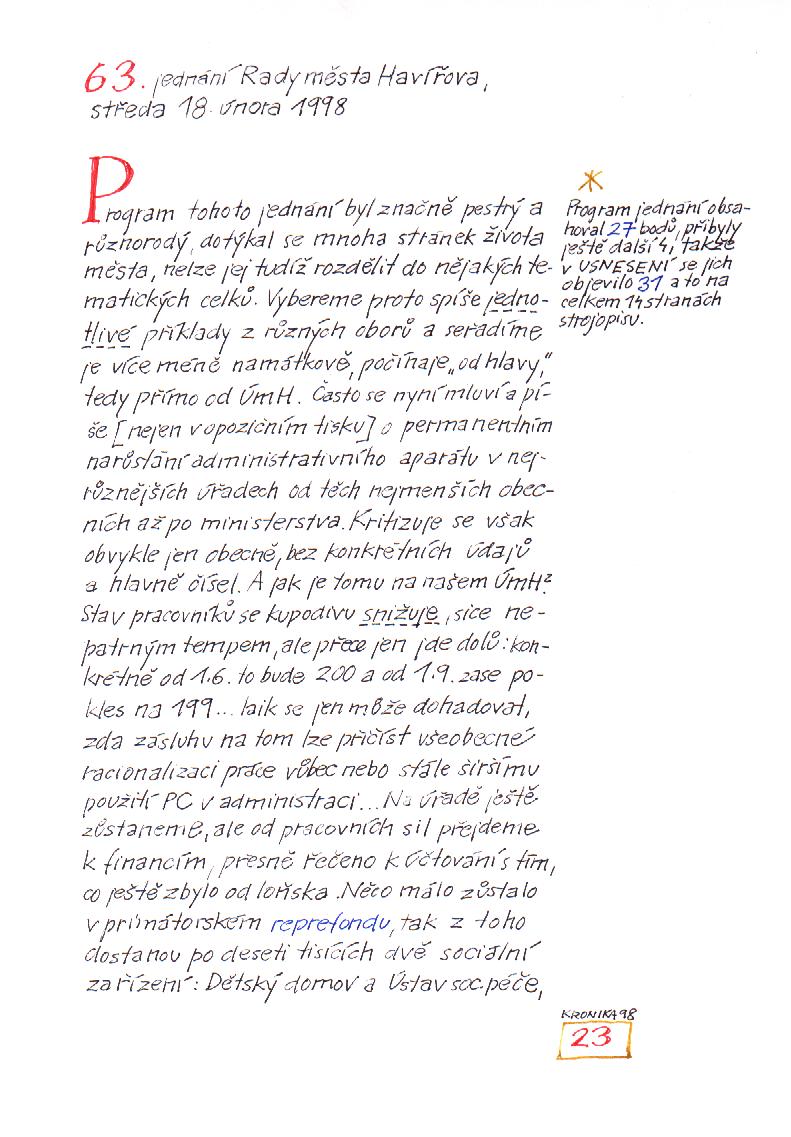 63. jednání Rady města Havířova,
středa 18. února 1998
Program tohoto jednání byl značně pestrý a
různorodý, dotýkal se mnoha stránek života
města, nelze jej tudíž rozdělit do nějakých te-
matických celků. Vybereme proto spíše jedno-
tlivé příklady z různých oborů a seřadíme
je více méně namátkově, počínaje „od hlavy,“
tedy přímo od ÚmH. Často se nyní mluví a pí-
še [nejen v opozičním tisku] o permanentním
narůstání administrativního aparátu v nej-
různějších úřadech od těch nejmenších obec-
ních až po ministerstva. Kritizuje se však
obvykle jen obecně, bez konkrétních údajů
a hlavně čísel. A jak je tomu na našem ÚmH?
Stav pracovníků se kupodivu snižuje, sice ne-
patrným tempem, ale přece jen jde dolů: kon-
krétně od 1.6. to bude 200 a od 1.9. zase po-
kles na 199... laik se jen může dohadovat,
zda zásluhu na tom lze přičíst všeobecné
racionalizaci práce vůbec nebo stále širšímu
použití PC v administraci... Na úřadě ještě
zůstaneme, ale od pracovních sil přejdeme
k financím, přesně řečeno k účtování s tím,
co ještě zbylo od loňska. Něco málo zůstalo
v primátorském reprefondu, tak z toho
dostanou po deseti tisících dvě sociální
zařízení: Dětský domov a Ústav soc. péče,
*
Program jednání obsa-
hoval 27 bodů, přibyly
ještě další 4, takže
v USNESENÍ se jich
objevilo 31 a to na
celkem 14 stranách
strojopisu.
KRONIKA 98
23